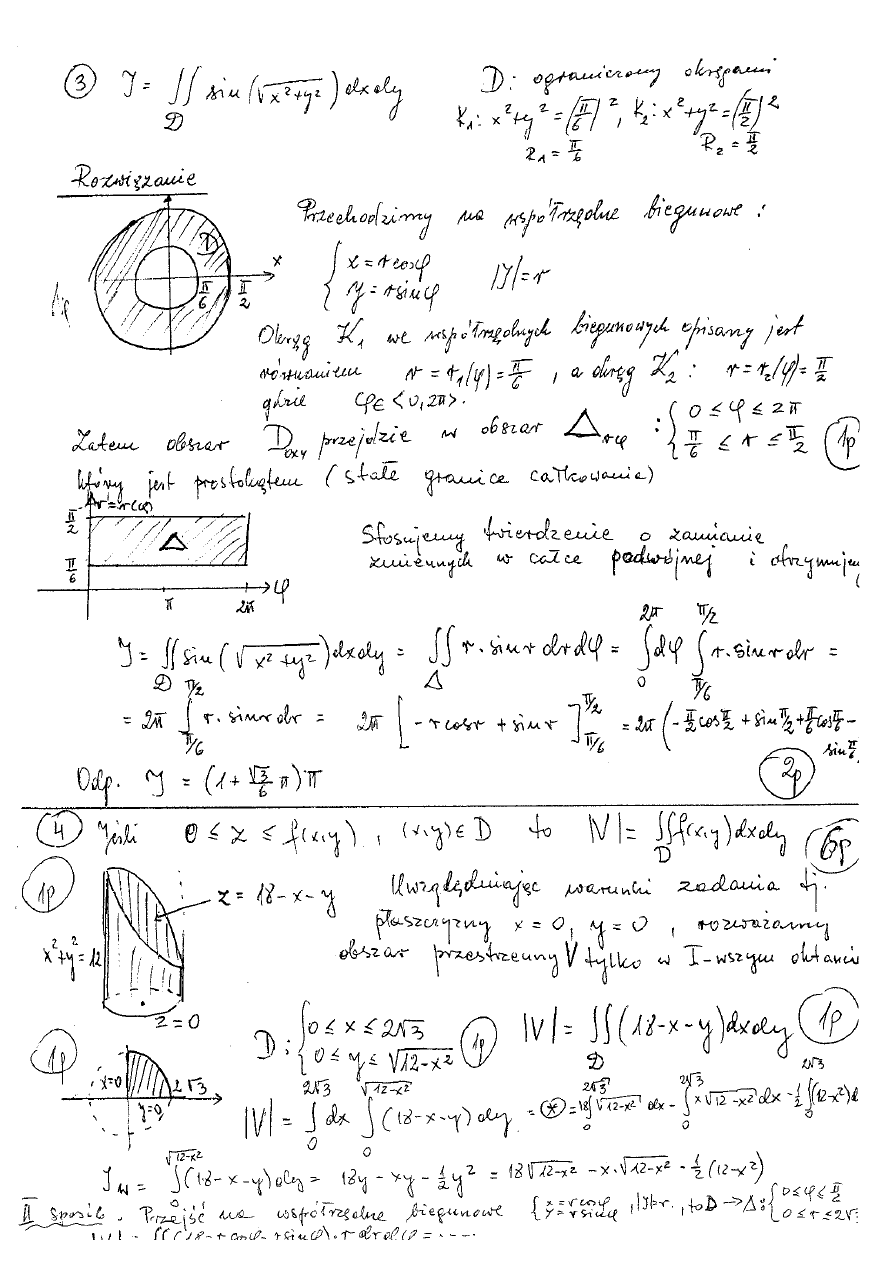 ③ J = ∬_D sin(√(x²+y²)) dxdy    D: ograniczony okręgami
K₁: x²+y² = (π/6)², K₂: x²+y² = (π/2)²
R₁ = π/6    R₂ = π/2
Rozwiązanie
Przechodzimy na współrzędne biegunowe:
D    x    π/6    π/2
{ x = r cosφ
{ y = r sinφ    |J| = r
Okrąg K₁ we współrzędnych biegunowych opisany jest
równaniem r = r₁(φ) = π/6, a okrąg K₂: r = r₂(φ) = π/2
gdzie φ∈<0,2π>.
Zatem obszar D_oxy przejdzie w obszar Δ_rφ : { 0 ≤ φ ≤ 2π
{ π/6 ≤ r ≤ π/2    1p
który jest prostokątem (stałe granice całkowania)
π/2    π/6    Δ    π    2π    φ
Stosujemy twierdzenie o zamianie
zmiennych w całce podwójnej i otrzymujemy
J = ∬_D sin(√(x²+y²)) dxdy = ∬_Δ r·sinr drdφ = ∫₀^{2π} dφ ∫_{π/6}^{π/2} r·sinr dr =
= 2π ∫_{π/6}^{π/2} r·sinr dr = 2π [-r cosr + sinr]_{π/6}^{π/2} = 2π (-π/2 cos π/2 + sin π/2 + π/6 cos π/6 -
sin π/6
Odp. J = (1 + √3/6 π) π    2p
④ Jeśli 0 ≤ z ≤ f(x,y), (x,y)∈D to |V| = ∬_D f(x,y) dxdy    6p
1p    z = 18-x-y    Uwzględniając warunki zadania tj.
płaszczyzny x=0, y=0, rozważamy
x²+y²=12    obszar przestrzenny V tylko w I-wszym oktancie
z=0
D: { 0 ≤ x ≤ 2√3
{ 0 ≤ y ≤ √(12-x²)    1p    |V| = ∬_D (18-x-y) dxdy    1p
1p    x=0    y=0    2√3
|V| = ∫₀^{2√3} dx ∫₀^{√(12-x²)} (18-x-y) dy = ⊛ = 18∫₀^{2√3} √(12-x²) dx - ∫₀^{2√3} x√(12-x²) dx - ½∫₀^{2√3} (12-x²)d
J_w = ∫₀^{√(12-x²)} (18-x-y) dy = 18y - xy - ½y² = 18√(12-x²) - x·√(12-x²) - ½(12-x²)
II sposób. Przejść na współrzędne biegunowe { x = r cosφ
{ y = r sinφ, |J|=r, to D → Δ: { 0 ≤ φ ≤ π/2
{ 0 ≤ r ≤ 2√3
|V| = ∬(18 - r cosφ - r sinφ)·r drdφ = ....